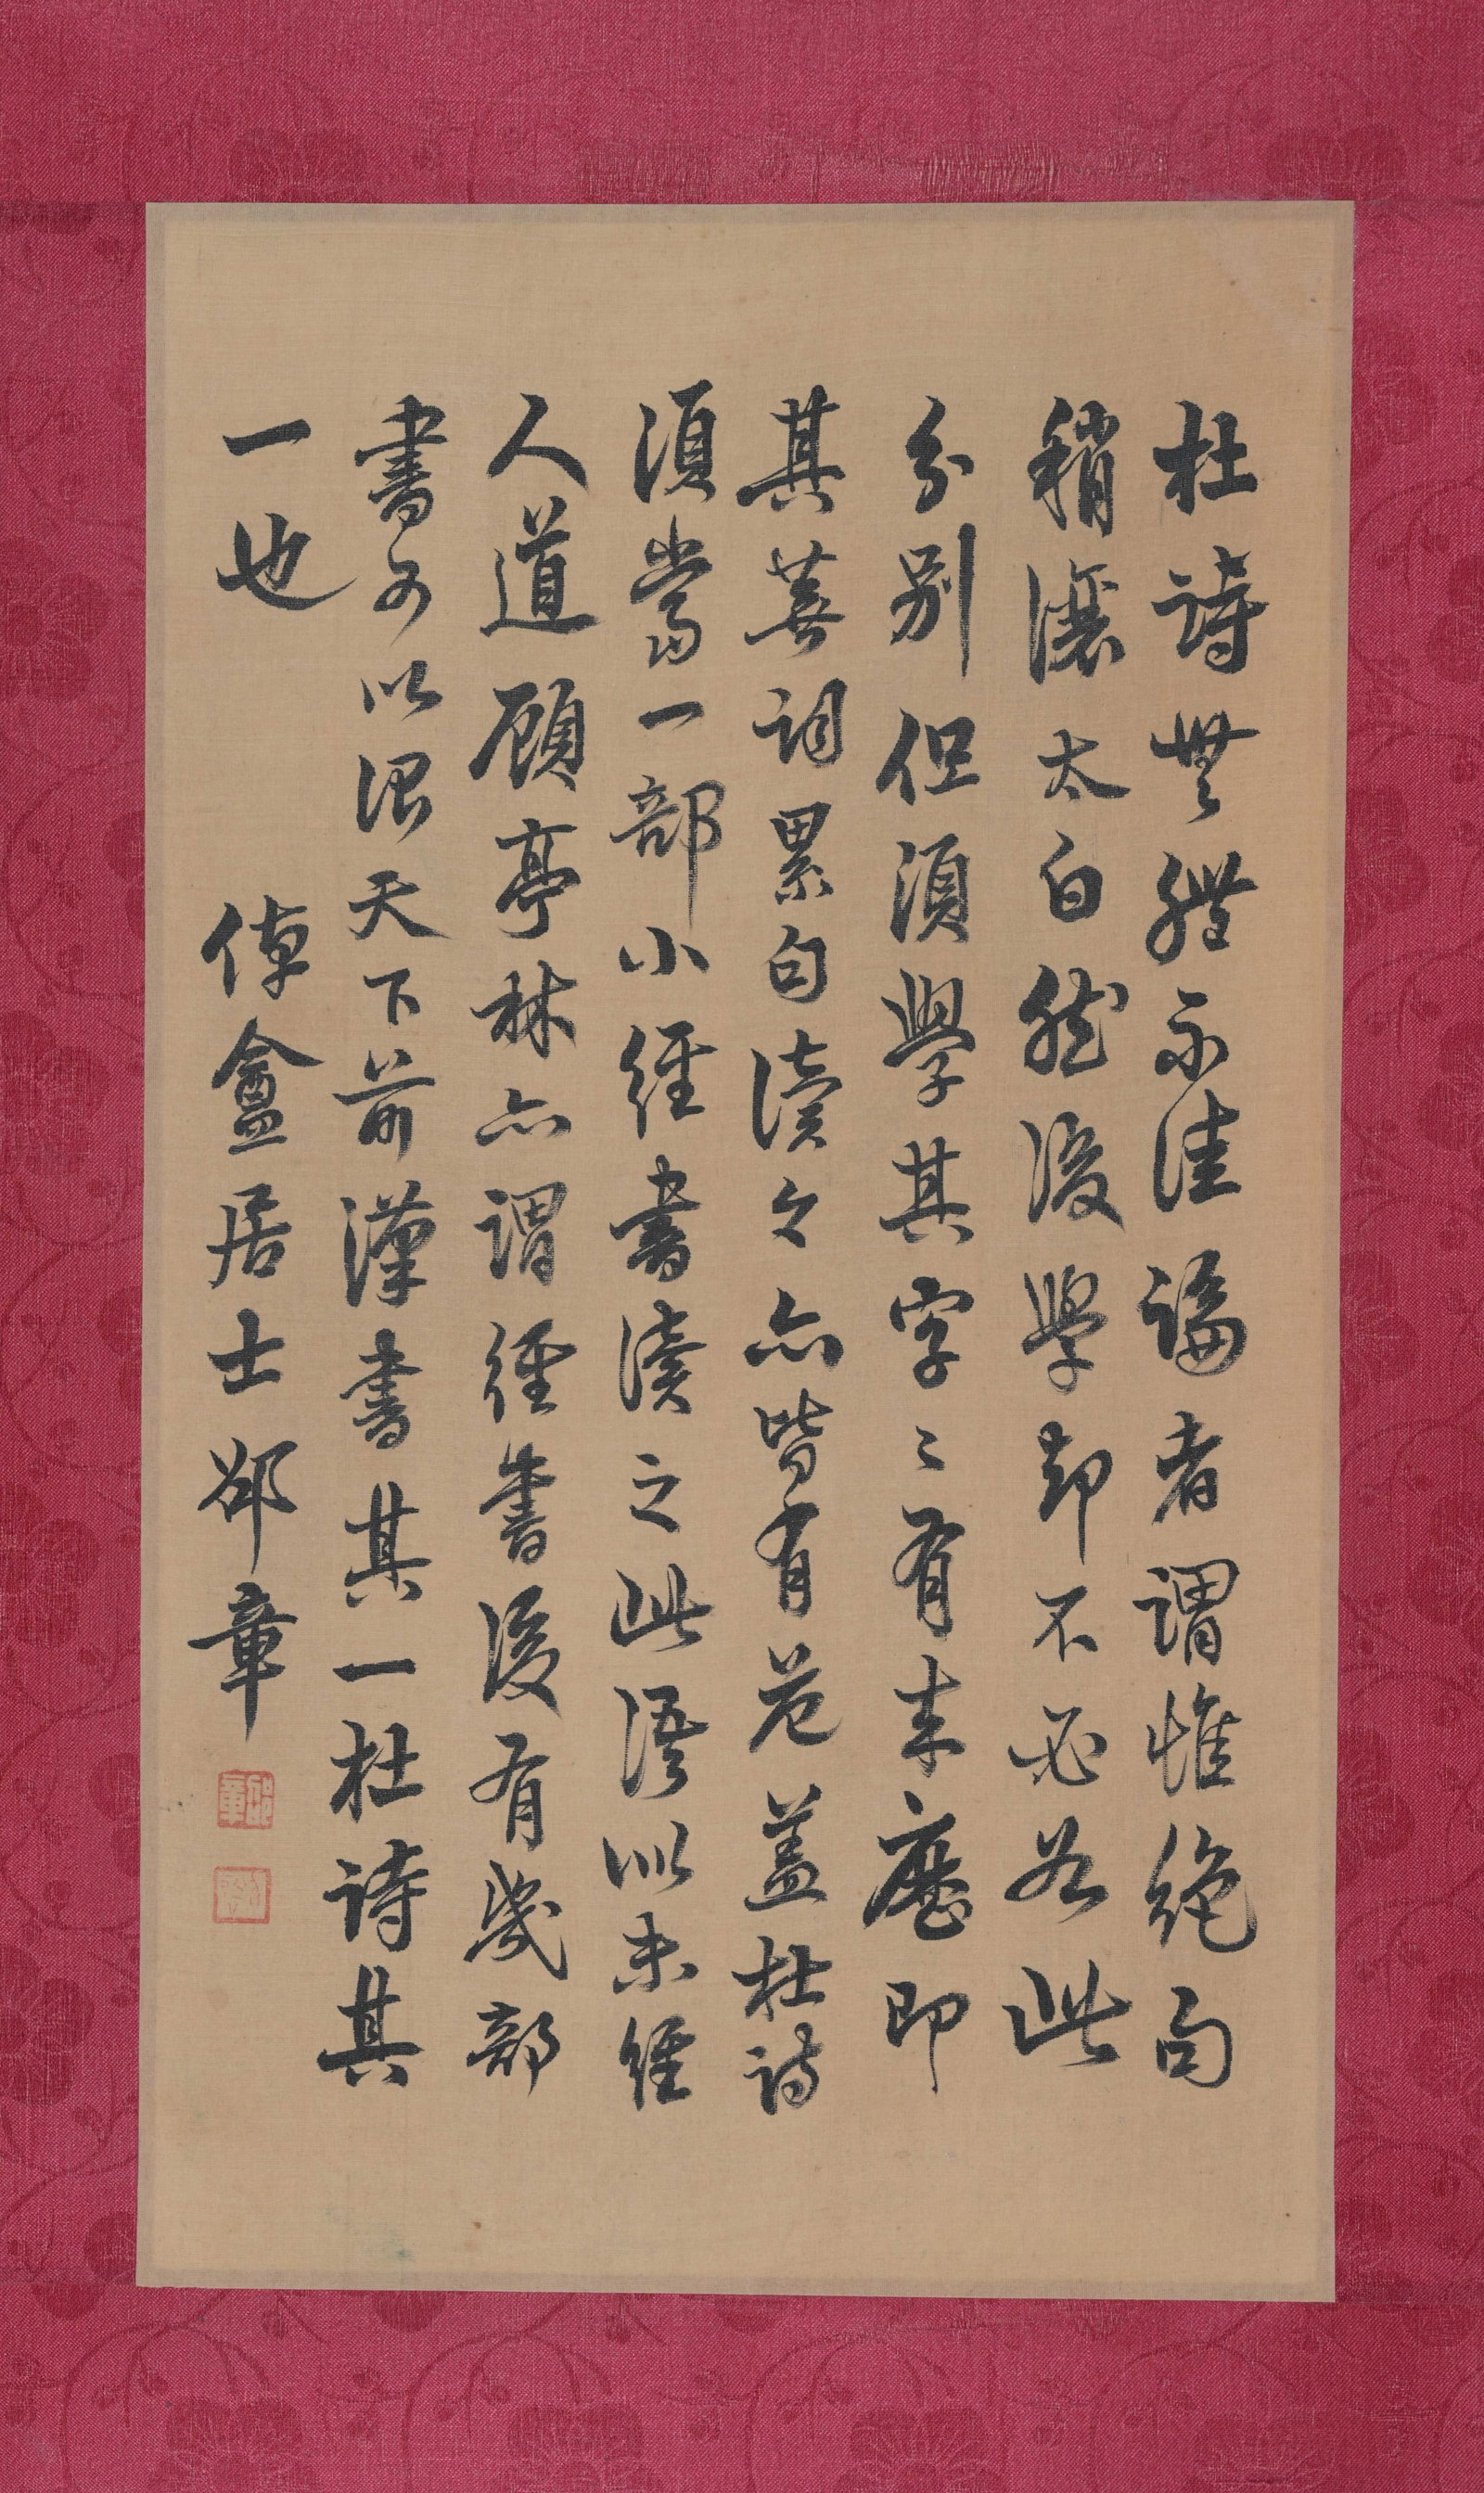 杜詩無體不佳論者謂惟絕句
稍讓太白然後學却不必爲此
分別但須學其字〻有來歷即
其蕪詞累句讀之亦皆有范蓋杜詩
須當一部小經書讀之此語似未經
人道顧亭林亦謂經書後有幾部
書可以治天下前漢書其一杜詩其
一也
倬盦居士邵章
邵章